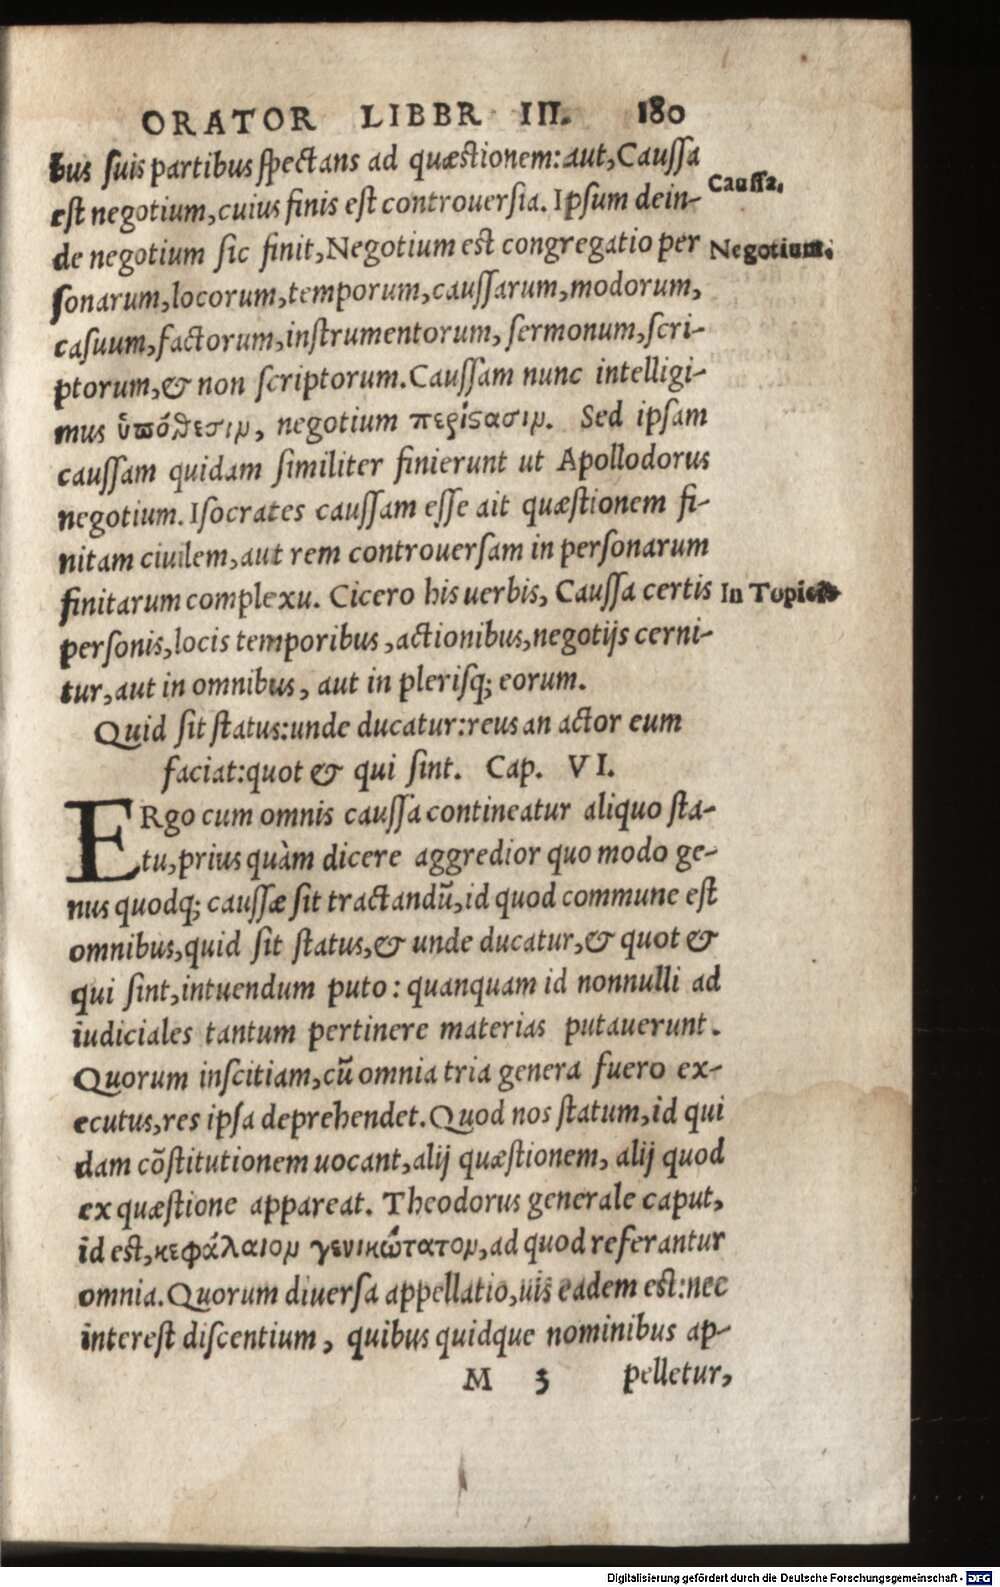 ORATOR LIBBR III. 180
bus suis partibus spectans ad quæstionem: aut, Caussa
est negotium, cuius finis est controuersia. Ipsum dein-
Caussa.
de negotium sic finit, Negotium est congregatio per
Negotium.
sonarum, locorum, temporum, caussarum, modorum,
casuum, factorum, instrumentorum, sermonum, scri-
ptorum, & non scriptorum. Caussam nunc intelligi-
mus ὑπόθεσιν, negotium περίϛασιν. Sed ipsam
caussam quidam similiter finierunt ut Apollodorus
negotium. Isocrates caussam esse ait quæstionem fi-
nitam ciuilem, aut rem controuersam in personarum
finitarum complexu. Cicero his uerbis, Caussa certis
In Topicis
personis, locis temporibus, actionibus, negotijs cerni-
tur, aut in omnibus, aut in plerisq; eorum.
Quid sit status: unde ducatur: reus an actor eum
faciat: quot & qui sint. Cap. VI.
ERgo cum omnis caussa contineatur aliquo sta-
tu, prius quàm dicere aggredior quo modo ge-
nus quodq; caussæ sit tractandũ, id quod commune est
omnibus, quid sit status, & unde ducatur, & quot &
qui sint, intuendum puto: quanquam id nonnulli ad
iudiciales tantum pertinere materias putauerunt.
Quorum inscitiam, cũ omnia tria genera fuero ex-
ecutus, res ipsa deprehendet. Quod nos statum, id qui
dam cõstitutionem uocant, alij quæstionem, alij quod
ex quæstione appareat. Theodorus generale caput,
id est, κεφάλαιον γενικώτατον, ad quod referantur
omnia. Quorum diuersa appellatio, uis eadem est: nec
interest discentium, quibus quidque nominibus ap-
M 3 pelletur,
Digitalisierung gefördert durch die Deutsche Forschungsgemeinschaft - DFG